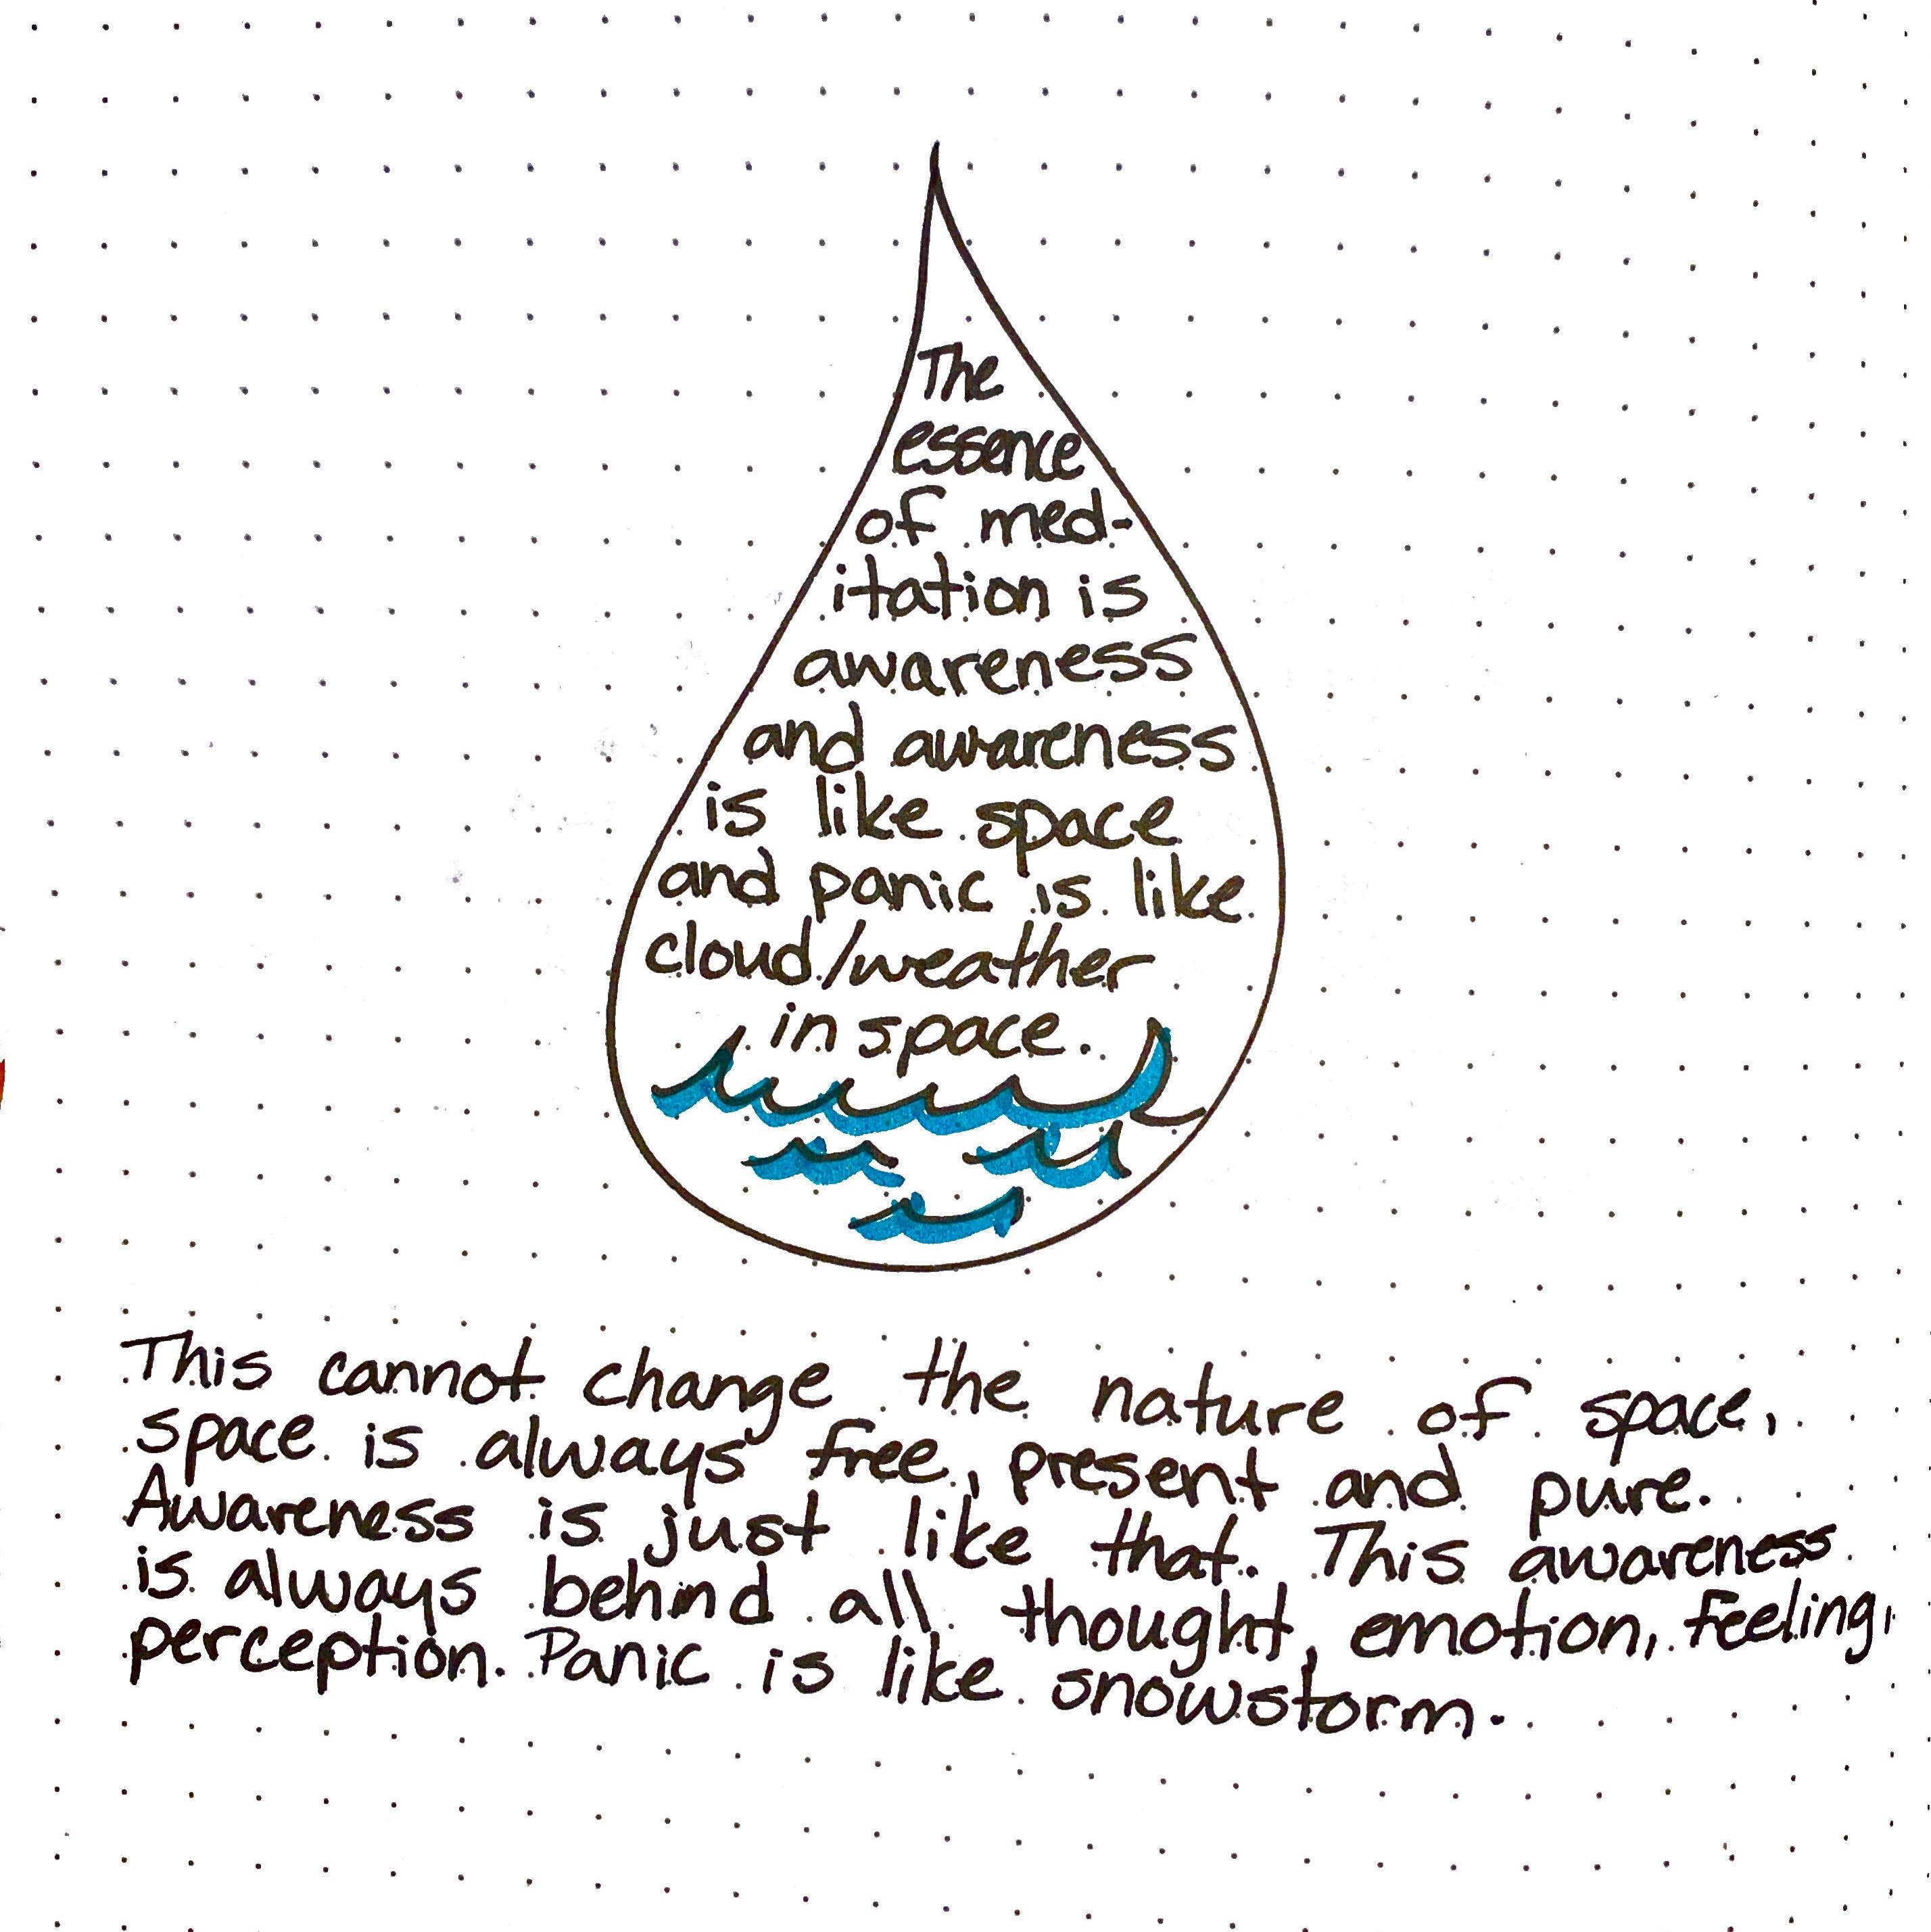 The
essence
of med-
itation is
awareness
and awareness
is like space
and panic is like
cloud/weather
in space.
This cannot change the nature of space,
space is always free, present and pure.
Awareness is just like that. This awareness
is always behind all thought, emotion, feeling,
perception. Panic is like snowstorm.